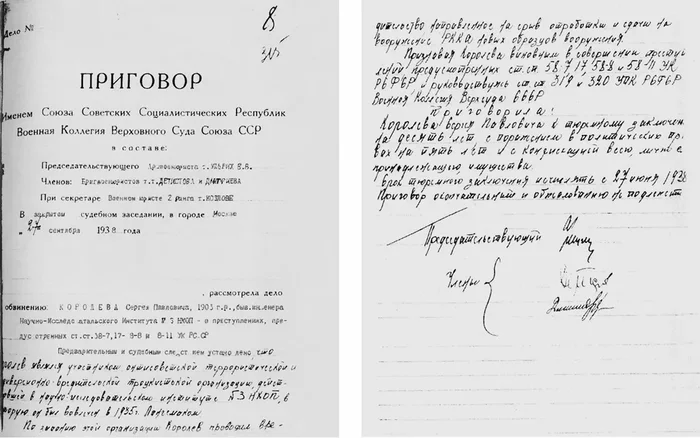 Дело №
8
ПРИГОВОР
Именем Союза Советских Социалистических Республик
Военная Коллегия Верховного Суда Союза ССР
в составе:
Председательствующего Армвоенюриста т. УЛЬРИХ В.В.
Членов: Бригвоенюристов т.т. ДЕТИСТОВА и
При секретаре Военном юристе 2 ранга т. КОЗЛОВЕ
В закрытом судебном заседании, в городе Москве
"27" сентября 1938 года
, рассмотрела дело
обвинению: КОРОЛЕВА Сергея Павловича, 190 г.р., быв. инженера
Научно-Исследовательского Института № 3 НКОП - в преступлениях, пре-
дусмотренных ст.ст. 58-7, 17-58-8 и 58-11 УК РСФСР
Предварительным и судебным следствием установлено, что
Королев являлся участником антисоветской террористической и
диверсионно-вредительской троцкистской организации, действо-
вавшей в научно-исследовательском институте № 3 НКОП, в
которую он был вовлечен в 1935 г. Лангемаком.
По заданию этой организации Королев проводил вре-
дительство направленное на срыв отработки и сдачи на
вооружение РККА новых образцов вооружения.
Признавая Королева виновным в совершении преступ-
лений предусмотренных ст.ст. 58-7, 17-58-8 и 58-11 УК
РСФСР, и руководствуясь ст.ст. 319 и 320 УПК РСФСР
Военная Коллегия Верхсуда СССР
Приговорила:
Королева Сергея Павловича к тюремному заключен.
на десять лет с поражением в политических пра-
вах на пять лет и с конфискацией всего, лично ему
принадлежащего имущества.
Срок тюремного заключения исчислять с 27 июня 1938
Приговор окончательный и обжалованию не подлежит
Председательствующий
Члены